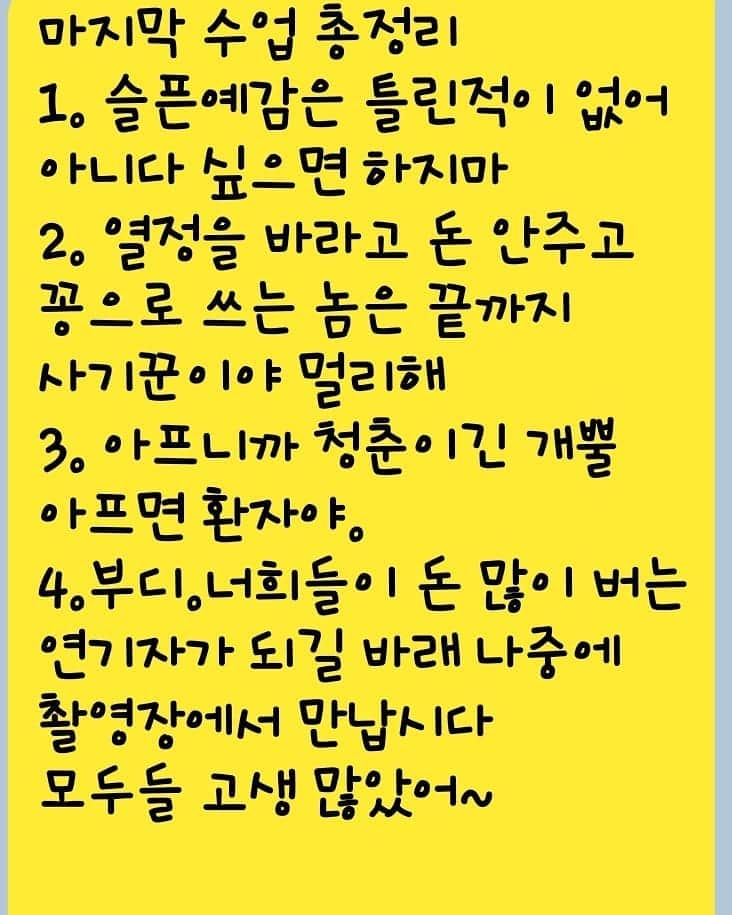 마지막 수업 총정리
1. 슬픈예감은 틀린적이 없어
아니다 싶으면 하지마
2. 열정을 바라고 돈 안주고
꽁으로 쓰는 놈은 끝까지
사기꾼이야 멀리해
3. 아프니까 청춘이긴 개뿔
아프면 환자야.
4.부디.너희들이 돈 많이 버는
연기자가 되길 바래 나중에
촬영장에서 만납시다
모두들 고생 많았어~